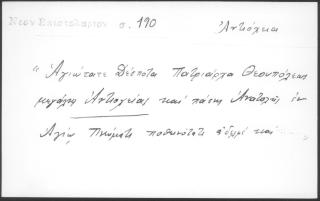 Νεον Επιστολαριον σ. 190
Ἀντιόχεια
"Ἁγιώτατε Δέσποτα Πατριάρχα Θεουπόλεως
μεγάλης Ἀντιοχείας καὶ πάσης Ἀνατολῆς ἐν
Ἁγίῳ Πνεύματι ποθεινότατε ἀδελφὲ καὶ